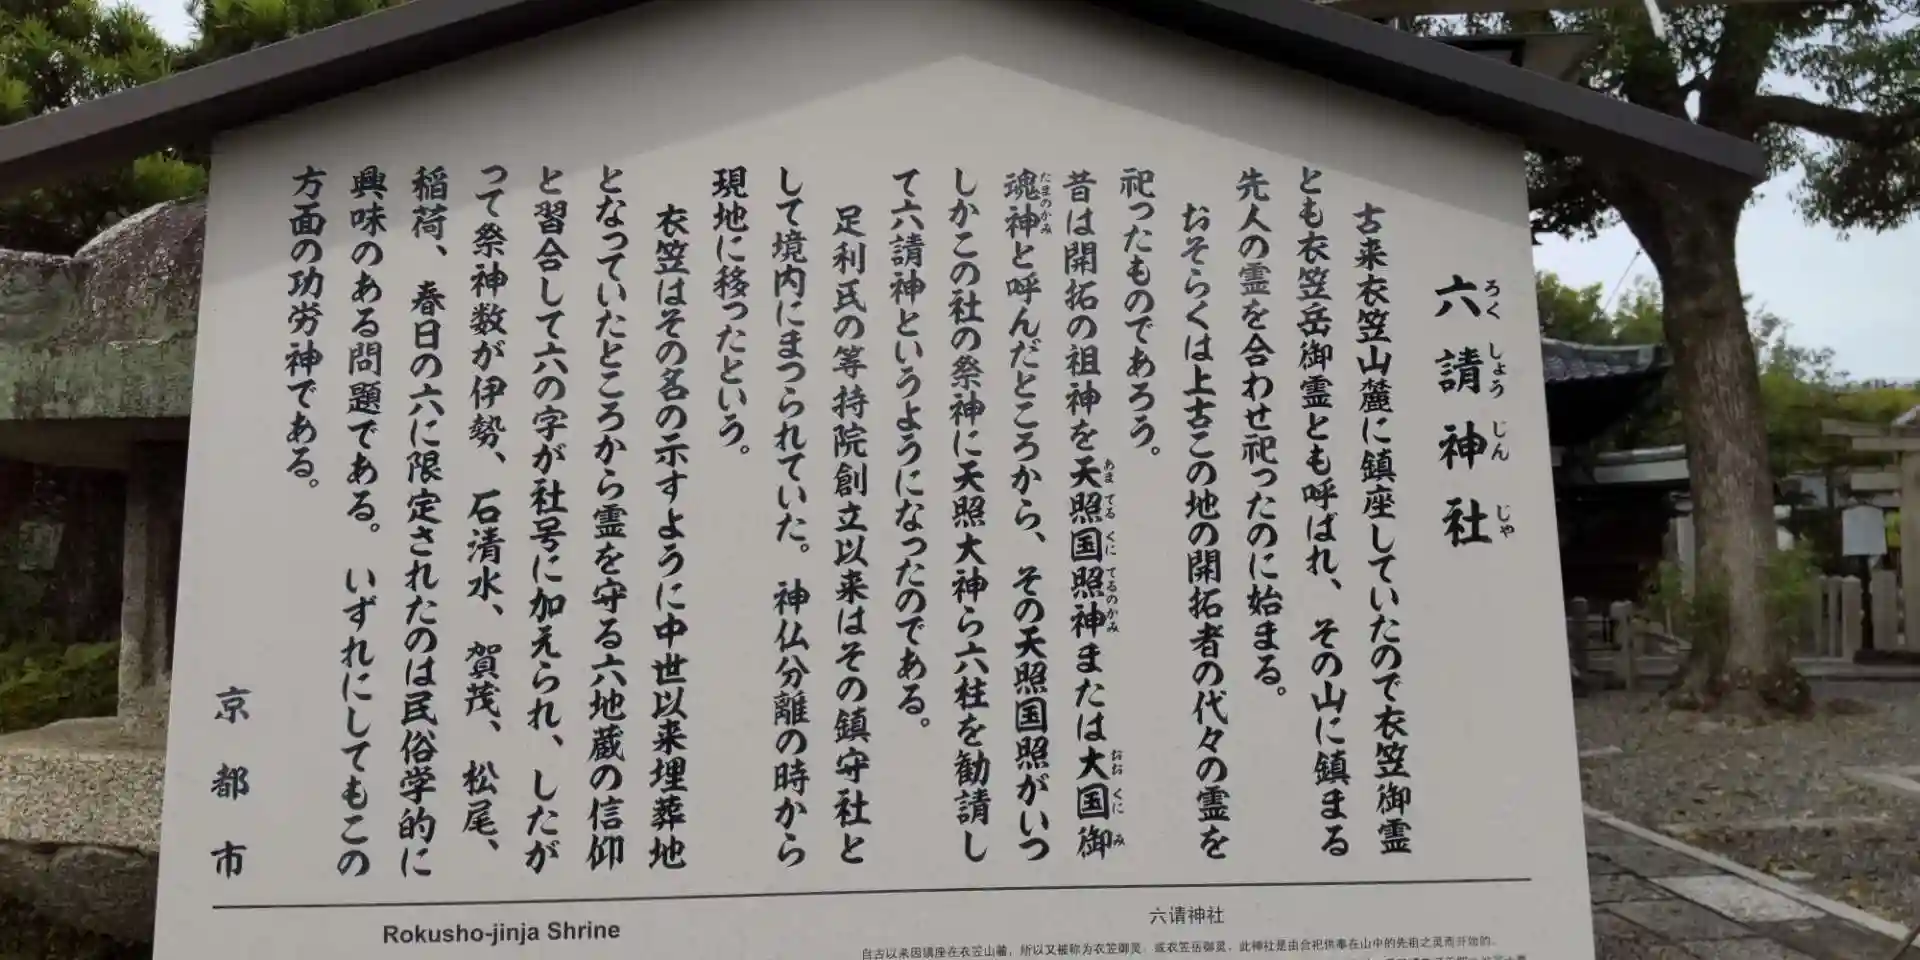 六請神社
ろく しょう じん じゃ
古来衣笠山麓に鎮座していたので衣笠御霊
とも衣笠岳御霊とも呼ばれ、その山に鎮まる
先人の霊を合わせ祀ったのに始まる。
おそらくは上古この地の開拓者の代々の霊を
祀ったものであろう。
昔は開拓の祖神を天照国照神または大国御
あま てる くに てるのかみ おお くに み
魂神と呼んだところから、その天照国照がいつ
たまのかみ
しかこの社の祭神に天照大神ら六柱を勧請し
て六請神というようになったのである。
足利氏の等持院創立以来はその鎮守社と
して境内にまつられていた。神仏分離の時から
現地に移ったという。
衣笠はその名の示すように中世以来埋葬地
となっていたところから霊を守る六地蔵の信仰
と習合して六の字が社号に加えられ、したが
って祭神数が伊勢、石清水、賀茂、松尾、
稲荷、春日の六に限定されたのは民俗学的に
興味のある問題である。いずれにしてもこの
方面の功労神である。
京都市
Rokusho-jinja Shrine
六请神社
自古以来因镇座在衣笠山麓，所以又被称为衣笠御灵，或衣笠岳御灵，此神社是由合祀供奉在山中的先祖之灵而开始的。